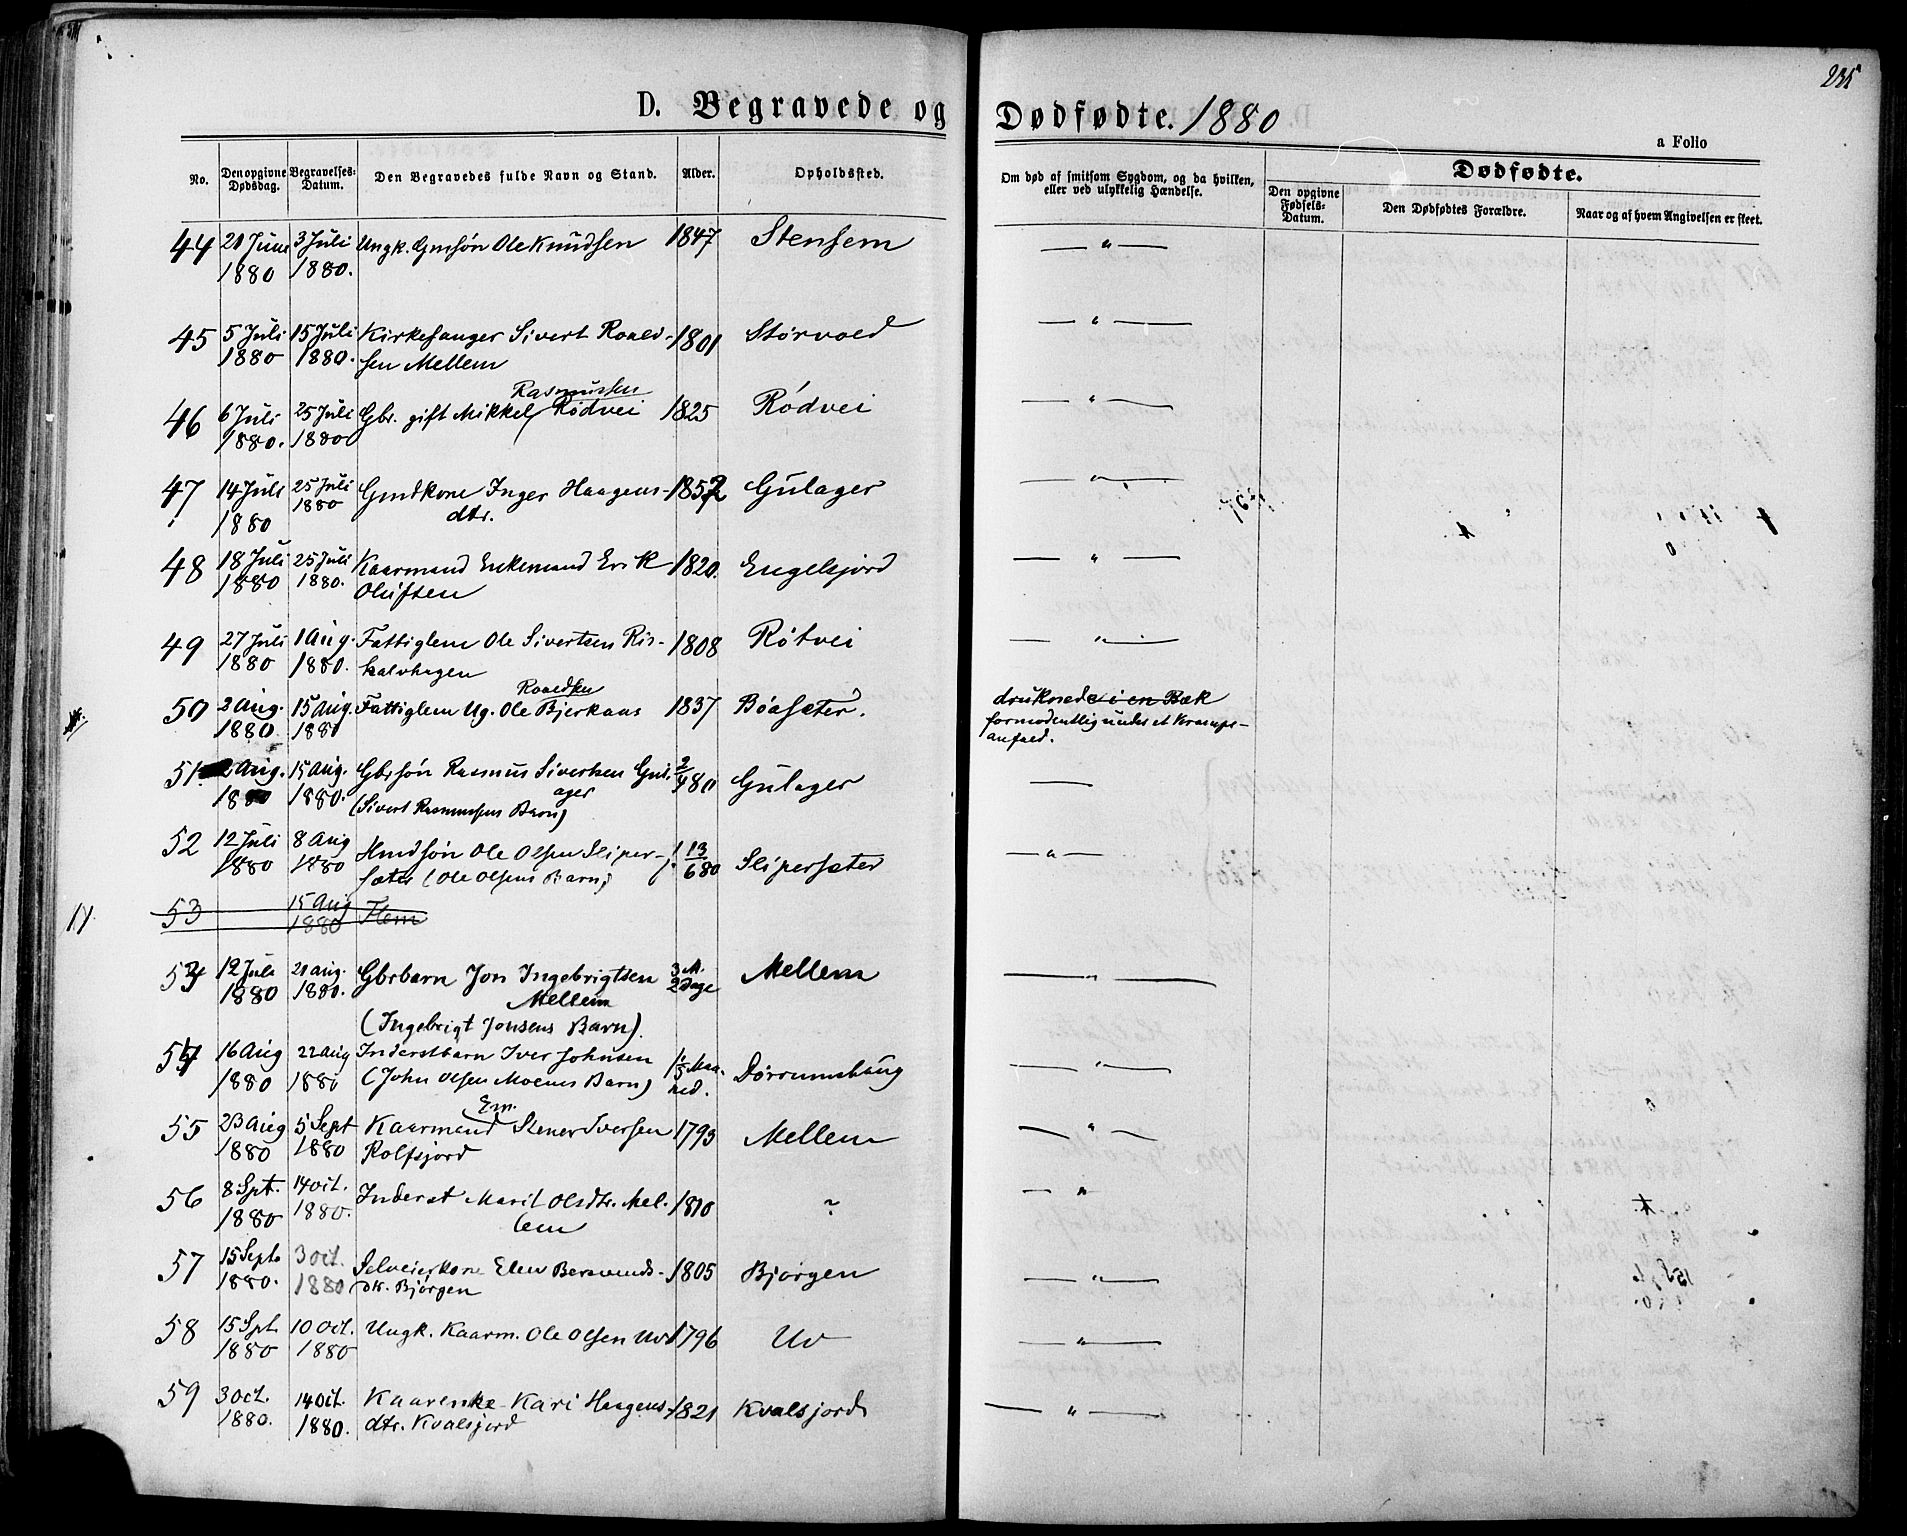 235
D. Begravede og Dødfødte. 1880
a Folio
No. Den opgivne Dødsdag. Begravelses-Datum. Den Begravedes fulde Navn og Stand. Alder. Opholdssted. Om død af smitsom Sygdom, og da hvilken, eller ved ulykkelig Hændelse. Dødfødte.
Den opgivne Fødsels-Datum. Den Dødfødtes Forældre. Naar og af hvem Angivelsen er skeet.
44 21 Juni 3 Juli Ungk. Gmsøn Ole Knudsen 1847 Stensem — " —
1880 1880.
45 5 Juli 15 Juli Kirkesanger Sivert Roald- 1801 Storvold — " —
1880 1880. sen Mellem
Rasmussen
46 6 Juli 25 Juli Gbr. gift Mikkel Rødvei 1825 Rødvei — " —
1880. 1880
47 14 Juli 25 Juli Gmdkone Inger Haagens- 1852 Gulager — " —
1880 1880 dtr.
48 18 Juli 25 Juli Kaarmand Enkemand Erik 1820. Engelsjord — " —
1880 1880. Olufsen
49 27 Juli 1 Aug. Fattiglem Ole Sivertsen Ris- 1808 Rötvei — " —
1880 1880. kalvhagen
Roaldsen
50 2 Aug. 15 Aug. Fattiglem Ug. Ole Bjerkaas 1837 Böasæter. druknede i en Bæk
1880. 1880 formodentlig under et Krampe-
anfald.
51 2 Aug. 15 Aug. Gbrsøn Rasmus Sivertsen Gul- 2/4 80 Gulager —
1880 1880. ager
(Sivert Rasmussens Barn)
52 12 Juli 8 Aug Hmdsøn Ole Olsen Sliper- 13/6 80 Slipersæter — " —
1880 1880 sæter (Ole Olsens Barn)
53 15 Aug
1880 Flem
53 12 Juli 21 Aug. Gbrbarn Jon Ingebrigtsen 3 M. Mellem — " —
1880 1880. Mellem 2 Dage
(Ingebrigt Jonsens Barn).
54 16 Aug 22 Aug Inderstbarn Iver Johnsen Maa- Dørrumshaug — " —
1880 1880 (John Olsen Moenes Barn) ned.
Em.
55 23 Aug 5 Sept Kaarmand Stener Iversen 1793 Mellem — " —
1880 1880 Rolfsjord
56 8 Spt. 14 Oct. Inderst Marit Olsdtr. Mel- 1810 ~ — "
1880 1880. lem
57 15 Sept 3 Oct. Selveierkone Elen Bersvends- 1805 Bjørgen — " —
1880. 1880 dtr. Bjørgen
58 15 Spt. 10 Oct. Ungk. Kaarm. Ole Olsen Uv 1796 Uv — " —
1880 1880
59 3 Oct. 14 Oct. Kaarenke Kari Haagens- 1821 Kvalsjord — " —
1880. 1880. dtr. Kvalsjord